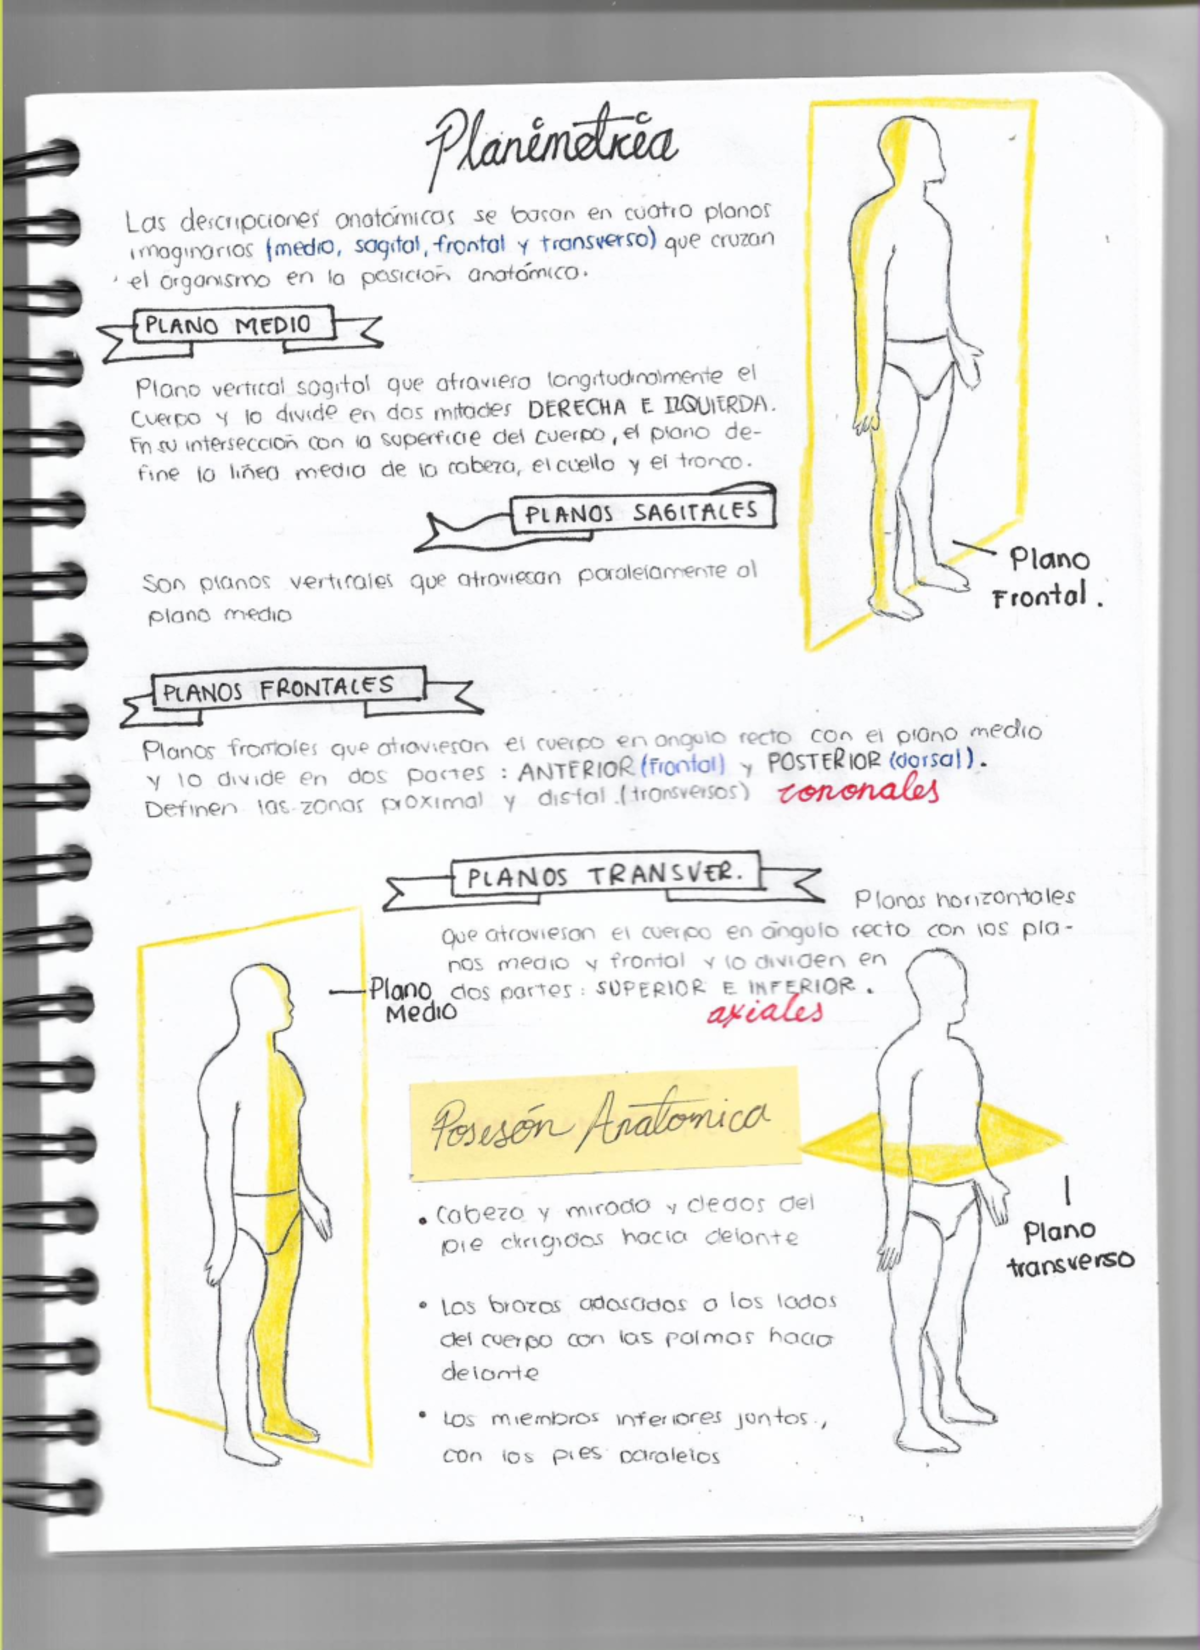 Planimetria
Las descripciones anatómicas se basan en cuatro planos
imaginarios (medio, sagital, frontal y transverso) que cruzan
el organismo en la posición anatómica.
PLANO MEDIO
Plano vertical sagital que atraviesa longitudinalmente el
cuerpo y lo divide en dos mitades DERECHA E IZQUIERDA.
En su intersección con la superficie del cuerpo, el plano de-
fine la línea media de la cabeza, el cuello y el tronco.
PLANOS SAGITALES
Son planos verticales que atraviesan paralelamente al
plano medio
Plano
Frontal.
PLANOS FRONTALES
Planos frontales que atraviesan el cuerpo en angulo recto con el plano medio
y lo divide en dos partes: ANTERIOR (frontal) y POSTERIOR (dorsal).
Definen las zonas proximal y distal.(transversos) coronales
PLANOS TRANSVER.
Planos horizontales
que atraviesan el cuerpo en ángulo recto con los pla-
nos medio y frontal y lo dividen en
dos partes: SUPERIOR E INFERIOR.
axiales
Plano
Medio
Posesón Anatomica
• Cabeza y mirada y dedos del
pie dirigidos hacia delante
• Los brazos adosados a los lados
del cuerpo con las palmas hacia
delante
• Los miembros inferiores juntos,
con los pies paralelos
Plano
transverso